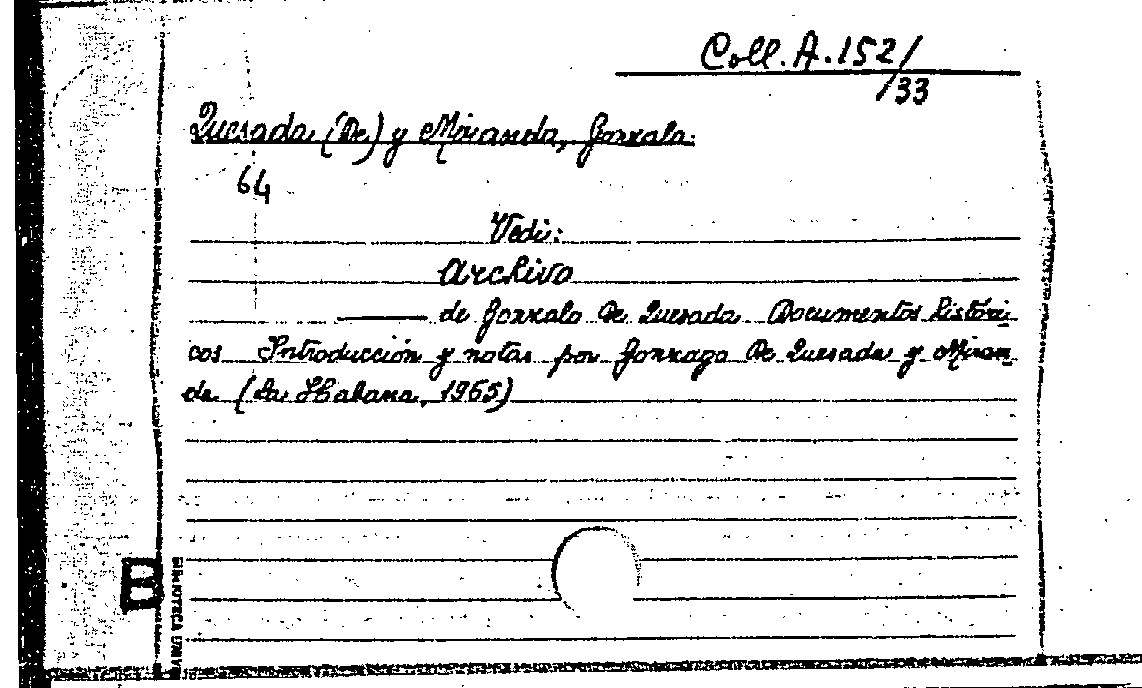 Coll. A. 152/
/33
Quesada (De) y Miranda, Gonzalo.
64
Vedi:
Archivo
—— de Gonzalo De Quesada Documentos histori-
cos Introducción y notas por Gonzaga De Quesada y Miran-
da (La Habana, 1965)
BIBLIOTECA UNIV